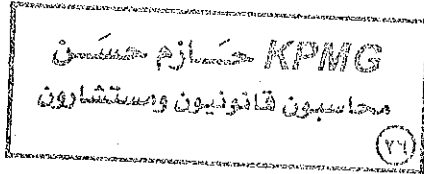 KPMG حازم حسن
محاسبون قانونيون ومستشارون
٢٦